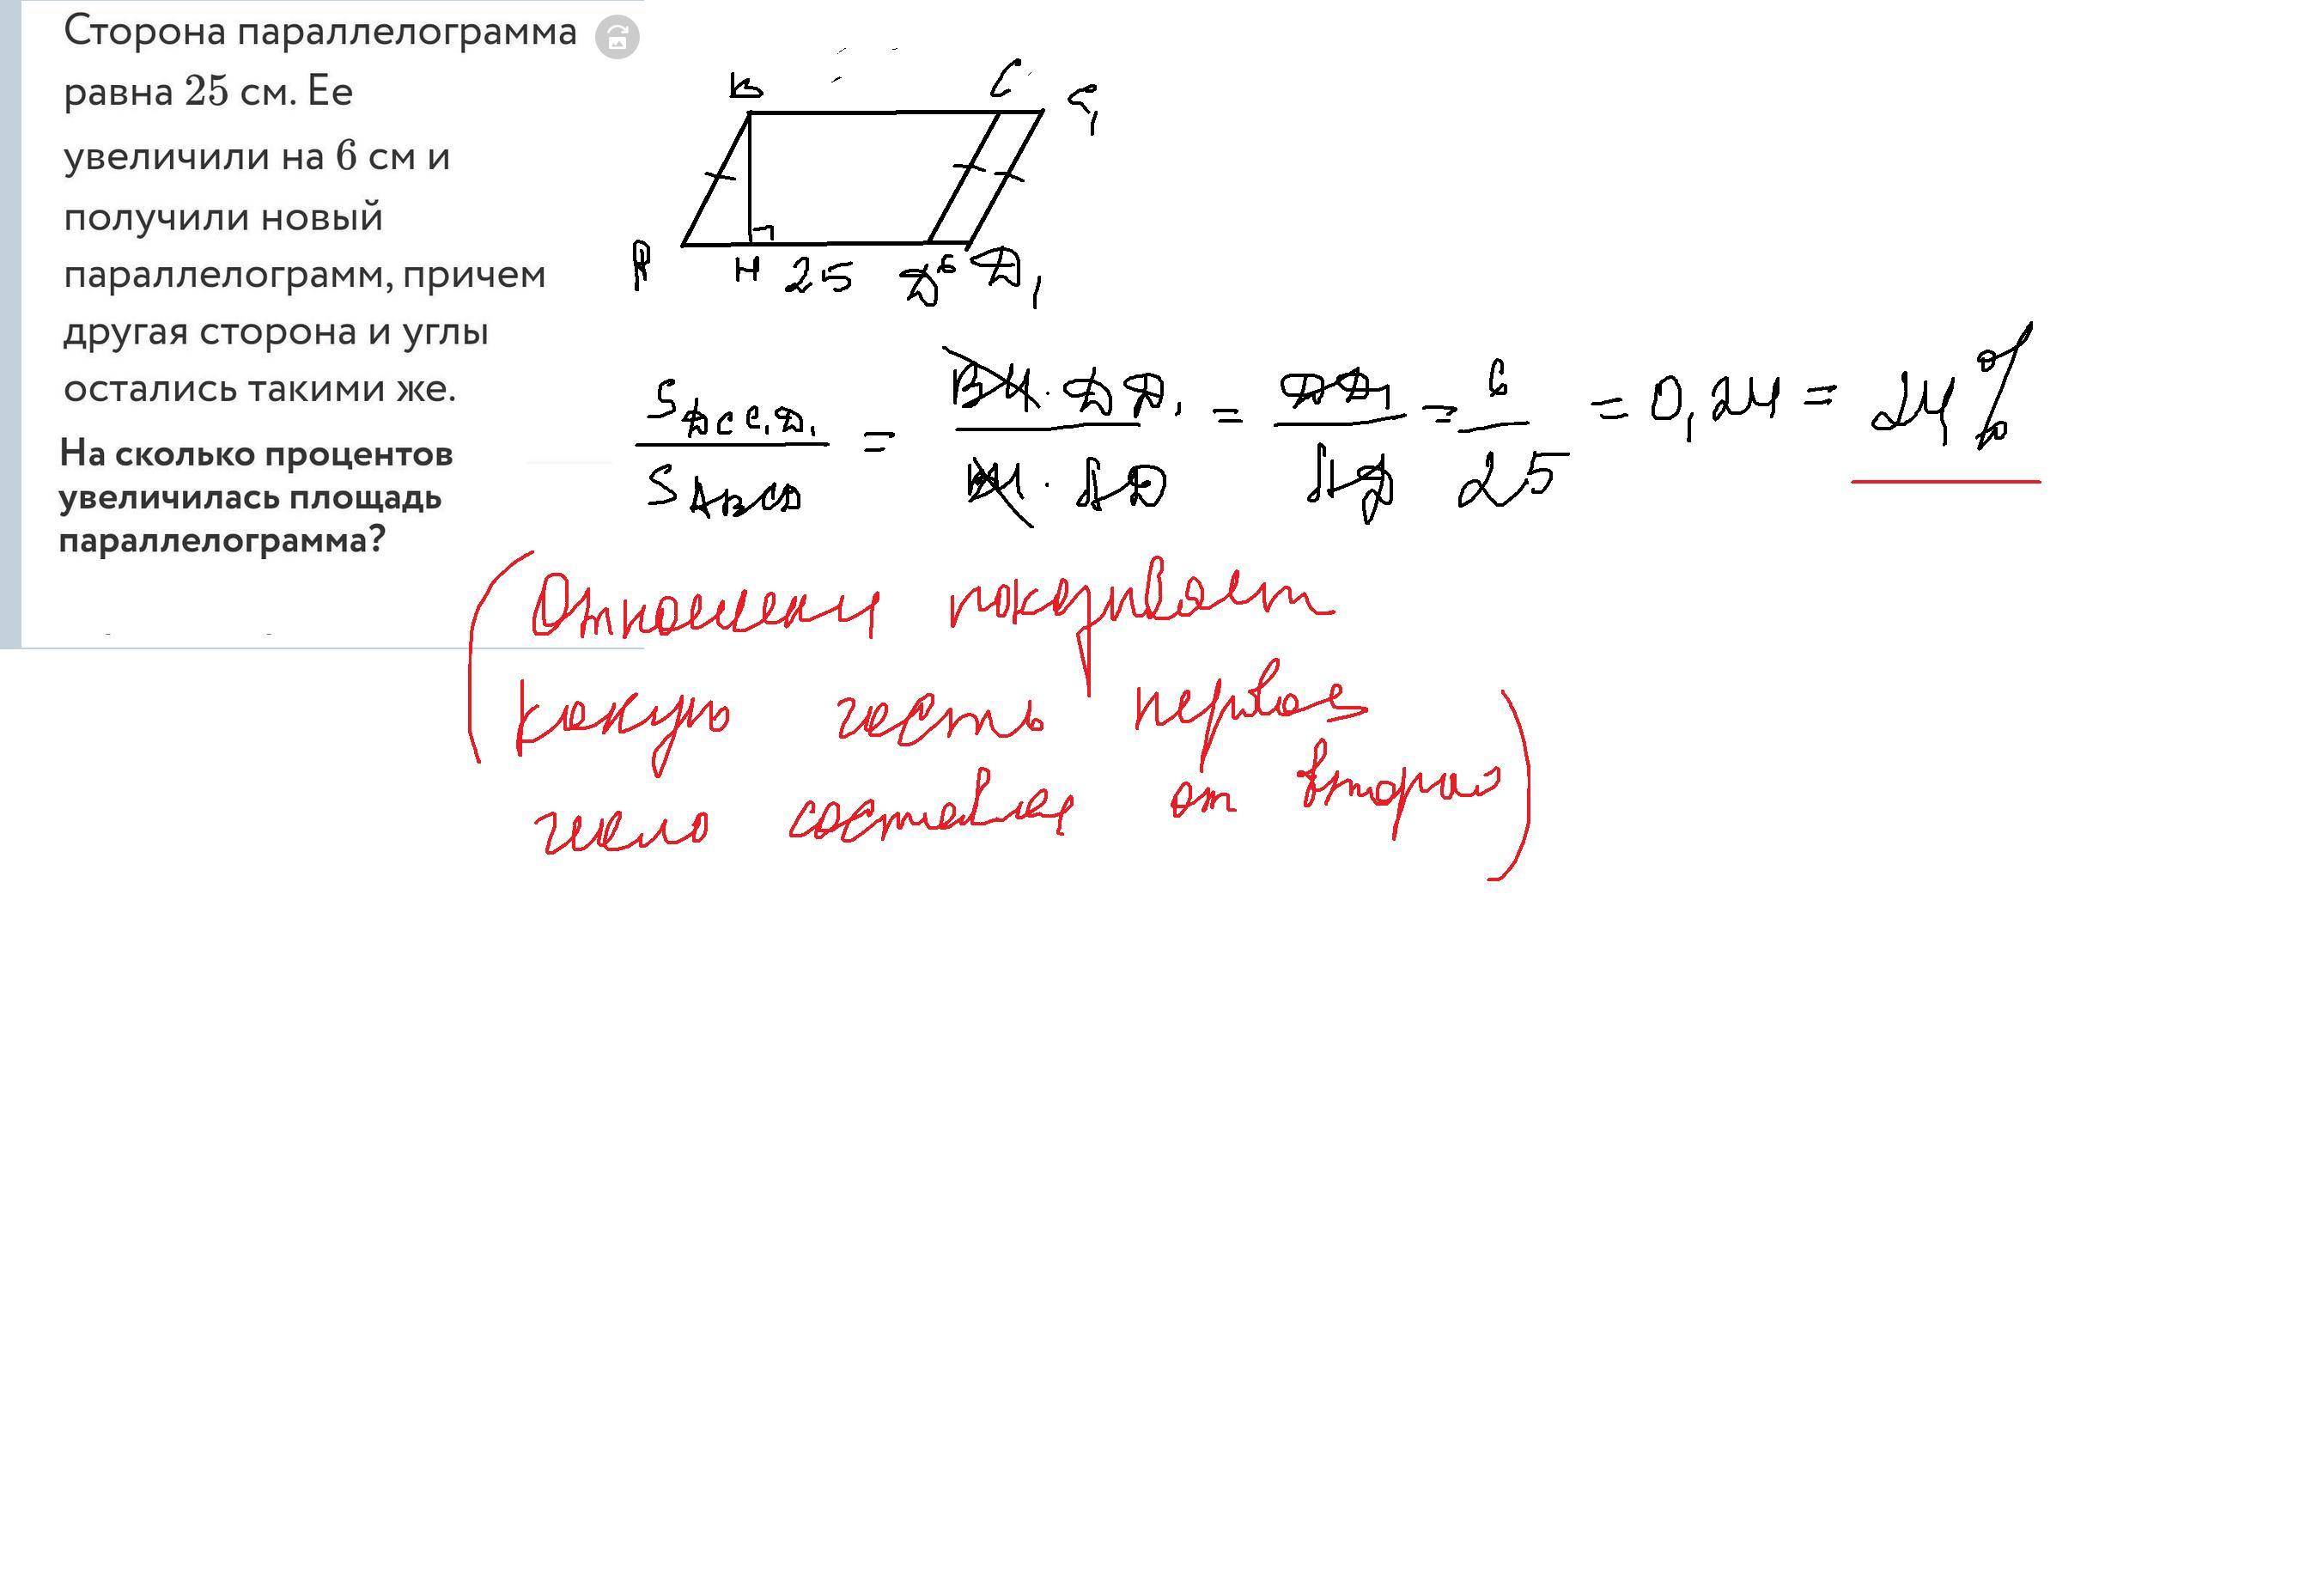 Сторона параллелограмма
равна 25 см. Ее
увеличили на 6 см и
получили новый
параллелограмм, причем
другая сторона и углы
остались такими же.
На сколько процентов
увеличилась площадь
параллелограмма?
B C C₁
A H 25 D 6 D₁
S_DCC₁D₁ / S_ABCD = BH · DD₁ / BH · AD = DD₁ / AD = 6 / 25 = 0,24 = 24%
(Отношени показывает
какую часть первое
число составляе от второго)